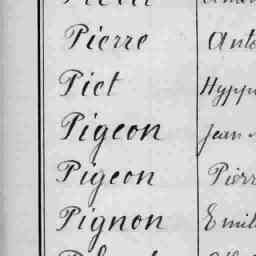 Pierre Anto
Piet Hyppo
Pigeon Jean
Pigeon Pierr
Pignon Emil